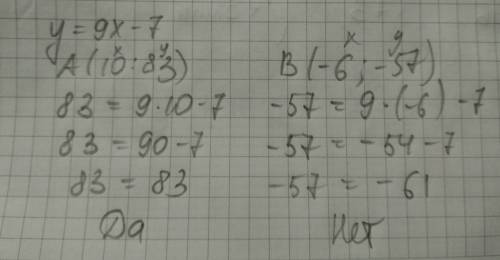 y = 9x - 7
x y
A (10 ; 83)
83 = 9 · 10 - 7
83 = 90 - 7
83 = 83
Да
x y
B (-6 ; -57)
-57 = 9 · (-6) - 7
-57 = -54 - 7
-57 = -61
Нет